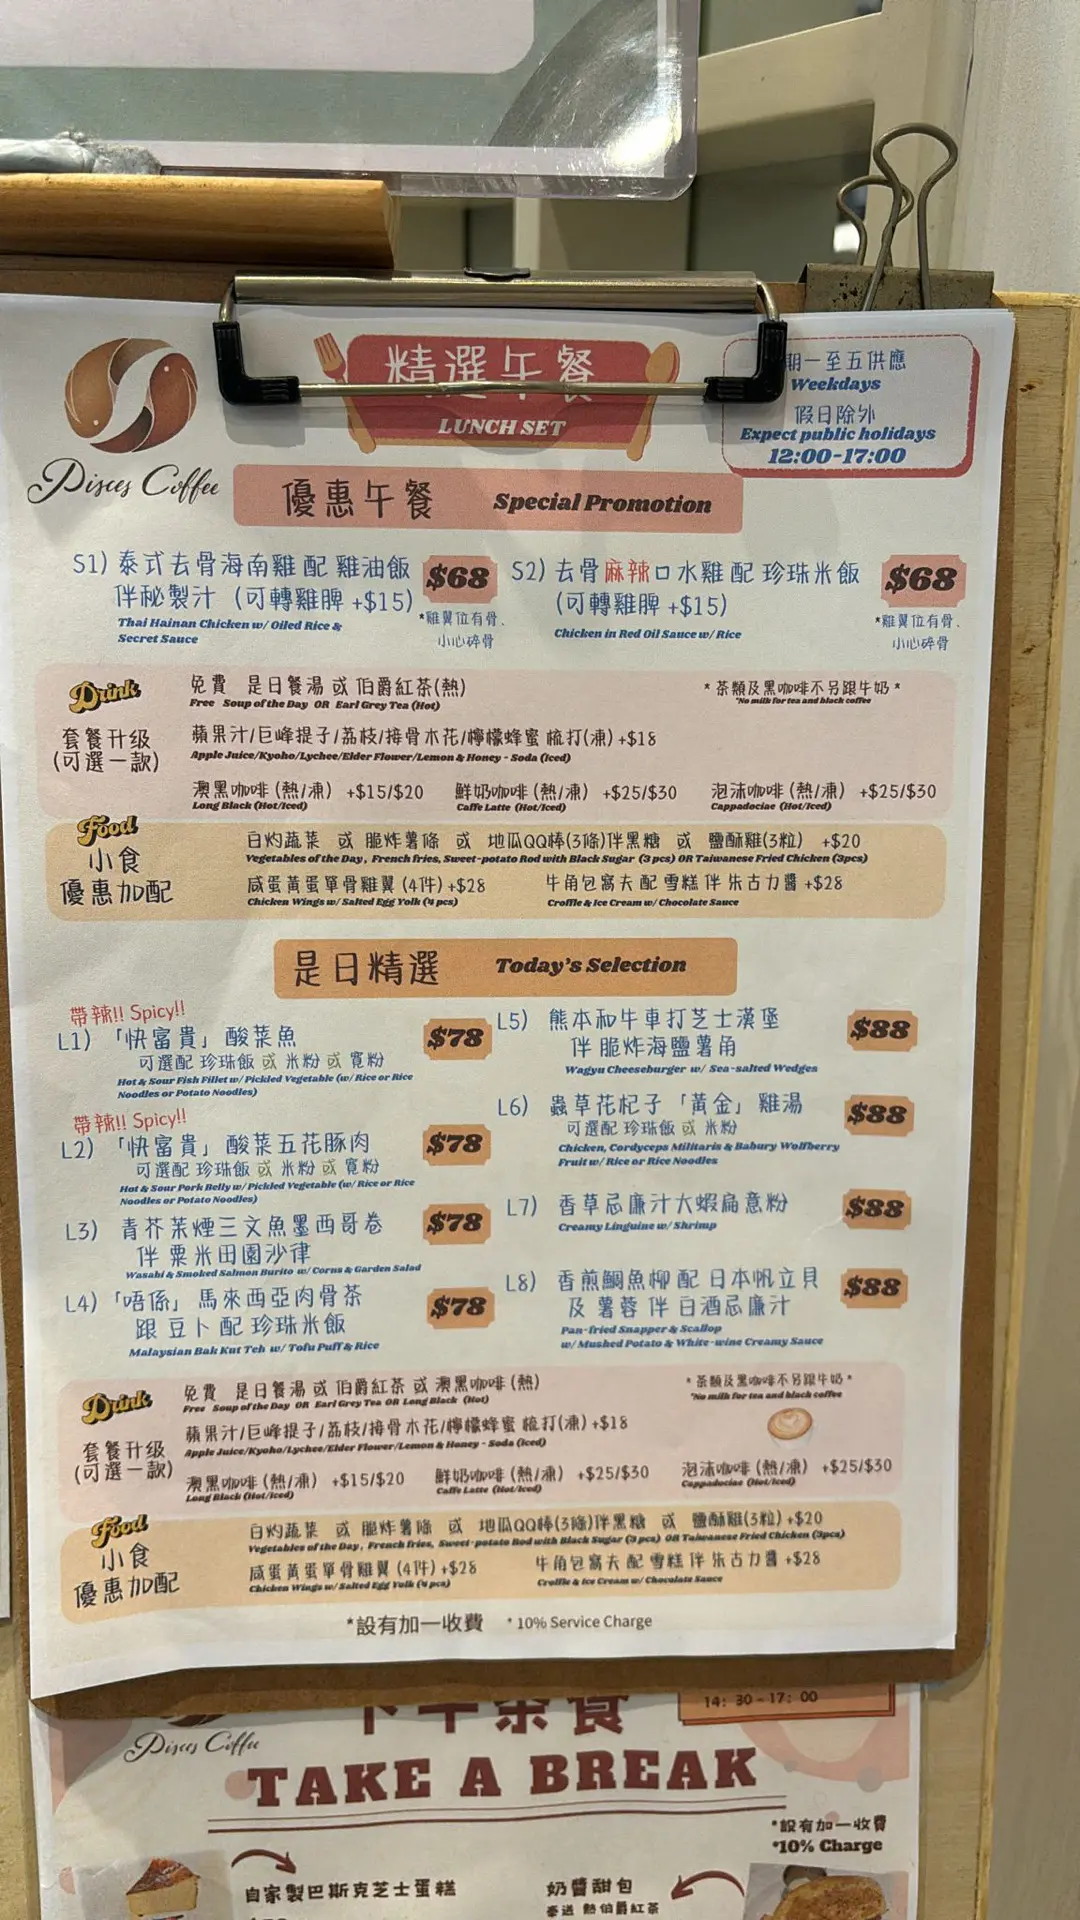 Pisces Coffee
精選午餐
LUNCH SET
期一至五供應
Weekdays
假日除外
Expect public holidays
12:00-17:00
優惠午餐 Special Promotion
S1) 泰式去骨海南雞 配 雞油飯 $68
伴秘製汁 (可轉雞脾 +$15)
Thai Hainan Chicken w/ Oiled Rice &
Secret Sauce
*雞翼位有骨、
小心碎骨
S2) 去骨麻辣口水雞 配 珍珠米飯 $68
(可轉雞脾 +$15)
Chicken in Red Oil Sauce w/ Rice
*雞翼位有骨、
小心碎骨
Drink
免費 是日餐湯 或 伯爵紅茶(熱)
Free Soup of the Day OR Earl Grey Tea (Hot)
* 茶類及黑咖啡不另跟牛奶 *
*No milk for tea and black coffee
套餐升级
(可選一款)
蘋果汁/巨峰提子/荔枝/接骨木花/檸檬蜂蜜 梳打(凍) +$18
Apple Juice/Kyoho/Lychee/Elder Flower/Lemon & Honey - Soda (Iced)
澳黑咖啡 (熱/凍) +$15/$20 鮮奶咖啡 (熱/凍) +$25/$30 泡沫咖啡 (熱/凍) +$25/$30
Long Black (Hot/Iced) Caffe Latte (Hot/Iced) Cappadociae (Hot/Iced)
Food
小食
優惠加配
白灼蔬菜 或 脆炸薯條 或 地瓜QQ棒(3條)伴黑糖 或 鹽酥雞(3粒) +$20
Vegetables of the Day, French fries, Sweet-potato Rod with Black Sugar (3 pcs) OR Taiwanese Fried Chicken (3pcs)
咸蛋黃蛋單骨雞翼 (4件) +$28 牛角包窩夫 配 雪糕 伴 朱古力醬 +$28
Chicken Wings w/ Salted Egg Yolk (4 pcs) Croffle & Ice Cream w/ Chocolate Sauce
是日精選 Today's Selection
帶辣!! Spicy!!
L1) 「快富貴」酸菜魚 $78
可選配 珍珠飯 或 米粉 或 寬粉
Hot & Sour Fish Fillet w/ Pickled Vegetable (w/ Rice or Rice
Noodles or Potato Noodles)
帶辣!! Spicy!!
L2) 「快富貴」酸菜五花豚肉 $78
可選配 珍珠飯 或 米粉 或 寬粉
Hot & Sour Pork Belly w/ Pickled Vegetable (w/ Rice or Rice
Noodles or Potato Noodles)
L3) 青芥茉煙三文魚墨西哥卷 $78
伴 粟米田園沙律
Wasabi & Smoked Salmon Burito w/ Corns & Garden Salad
L4) 「唔係」馬來西亞肉骨茶 $78
跟 豆卜 配 珍珠米飯
Malaysian Bak Kut Teh w/ Tofu Puff & Rice
L5) 熊本和牛車打芝士漢堡 $88
伴 脆炸海鹽薯角
Wagyu Cheeseburger w/ Sea-salted Wedges
L6) 蟲草花杞子「黃金」雞湯 $88
可選配 珍珠飯 或 米粉
Chicken, Cordyceps Militaris & Babury Wolfberry
Fruit w/ Rice or Rice Noodles
L7) 香草忌廉汁大蝦扁意粉 $88
Creamy Linguine w/ Shrimp
L8) 香煎鯛魚柳 配 日本帆立貝 $88
及 薯蓉 伴 白酒忌廉汁
Pan-fried Snapper & Scallop
w/ Mushed Potato & White-wine Creamy Sauce
Drink
免費 是日餐湯 或 伯爵紅茶 或 澳黑咖啡 (熱)
Free Soup of the Day OR Earl Grey Tea OR Long Black (Hot)
* 茶類及黑咖啡不另跟牛奶 *
*No milk for tea and black coffee
套餐升级
(可選一款)
蘋果汁/巨峰提子/荔枝/接骨木花/檸檬蜂蜜 梳打(凍) +$18
Apple Juice/Kyoho/Lychee/Elder Flower/Lemon & Honey - Soda (Iced)
澳黑咖啡 (熱/凍) +$15/$20 鮮奶咖啡 (熱/凍) +$25/$30 泡沫咖啡 (熱/凍) +$25/$30
Long Black (Hot/Iced) Caffe Latte (Hot/Iced) Cappadociae (Hot/Iced)
Food
小食
優惠加配
白灼蔬菜 或 脆炸薯條 或 地瓜QQ棒(3條)伴黑糖 或 鹽酥雞(3粒) +$20
Vegetables of the Day, French fries, Sweet-potato Rod with Black Sugar (3 pcs) OR Taiwanese Fried Chicken (3pcs)
咸蛋黃蛋單骨雞翼 (4件) +$28 牛角包窩夫 配 雪糕 伴 朱古力醬 +$28
Chicken Wings w/ Salted Egg Yolk (4 pcs) Croffle & Ice Cream w/ Chocolate Sauce
*設有加一收費 * 10% Service Charge
下午茶餐
14: 30 - 17: 00
Pisces Coffee
TAKE A BREAK
*設有加一收費
*10% Charge
自家製巴斯克芝士蛋糕
奶醬甜包
奉送 熱伯爵紅茶